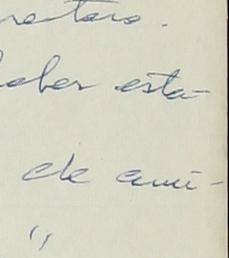 retaro.
haber esta-
de ami-
"